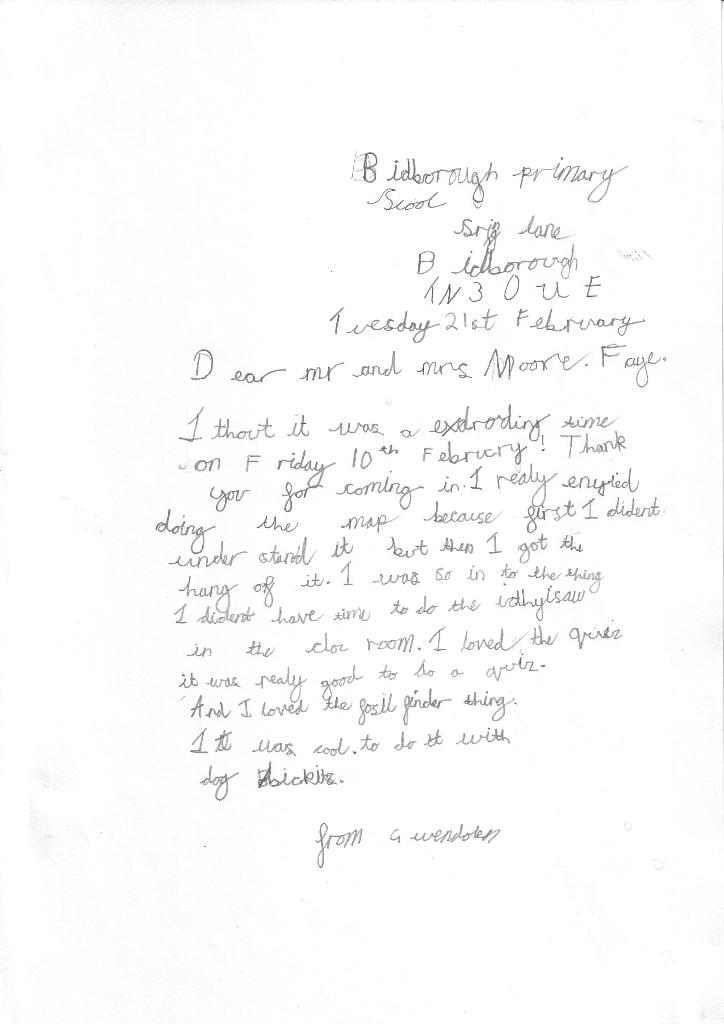 Bidborough primary
Scool
Srig lane
Bidborough
TN3 0UE
Tuesday 21st February
Dear mr and mrs Moore. Faye.
I thout it was a exdroding time
on Friday 10th Februcry! Thank
you for coming in. I realy enyied
doing the map because first I dident
under stand it but then I got the
hang of it. I was so in to the thing
I dident have time to do the
in the cloc room. I loved the quiz
it was realy good to do a quiz.
And I loved the fosil finder thing.
It was cool. to do it with
dog bickits.
from Gwendolen